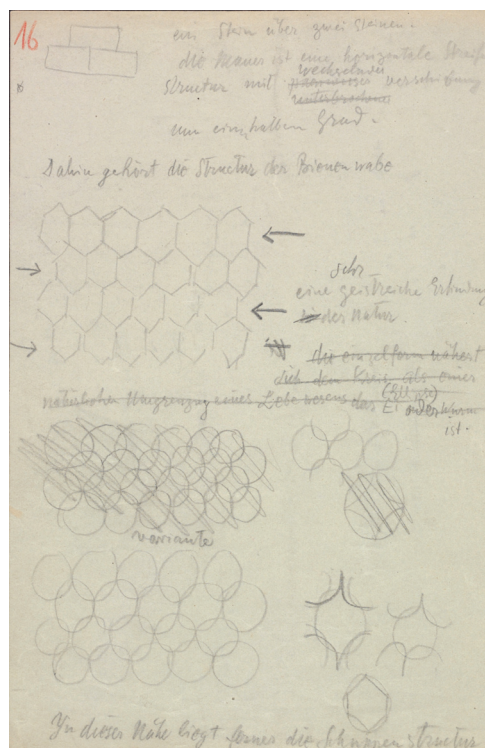 16
ein Stein über zwei Steinen.
die Mauer ist eine horizontale
wechselnder
Structur mit verschiebung
um ein halben Grad.
Dahin gehört die Structur der Bienenwabe
sehr
eine geistreiche Erfindung
der Natur.
die einzelform nähert
sich dem Kreis, als einer
(Ellipse)
natürlichen Umgrenzung eines Lebewesens das Ei oder Wurm
ist.
variante
In dieser Nähe liegt ferner die Schuppenstructur